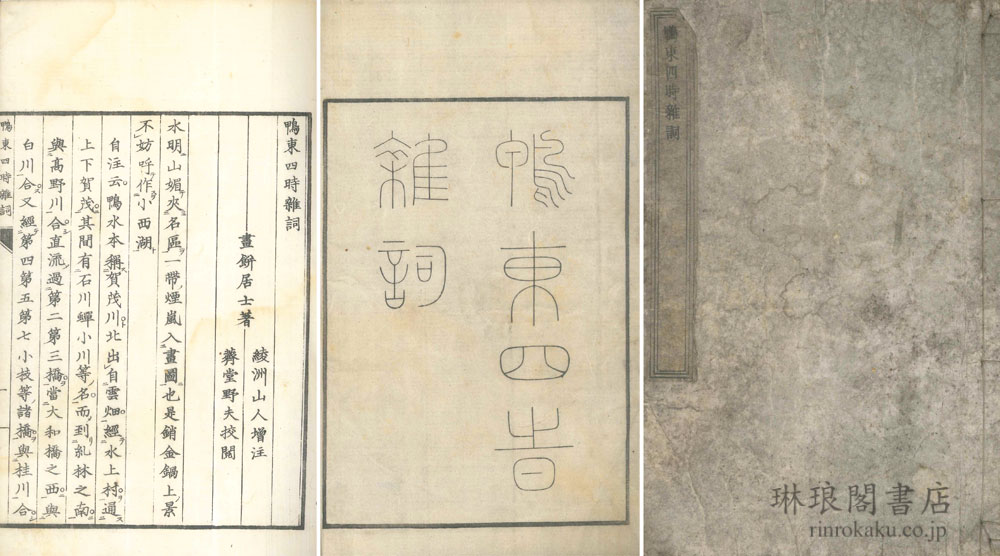 鴨東四時雜詞
畫餠居士著
綾洲山人增注
蕣堂野夫挍閲
水明山媚夾名區一帶煙嵐入畫圖也是銷金鍋上景
不妨呼作小西湖
自注云鴨水本稱賀茂川北出自雲畑經水上村通
上下賀茂其間有石川蟬小川等名而到糺林之南
與高野川合直流過第二第三橋當大和橋之西與
白川合又經第四第五第七小枝等諸橋與桂川合
鴨東四時雜詞
鴨東四旹
雜詞
鴨東四時雜詞
琳琅閣書店
rinrokaku.co.jp